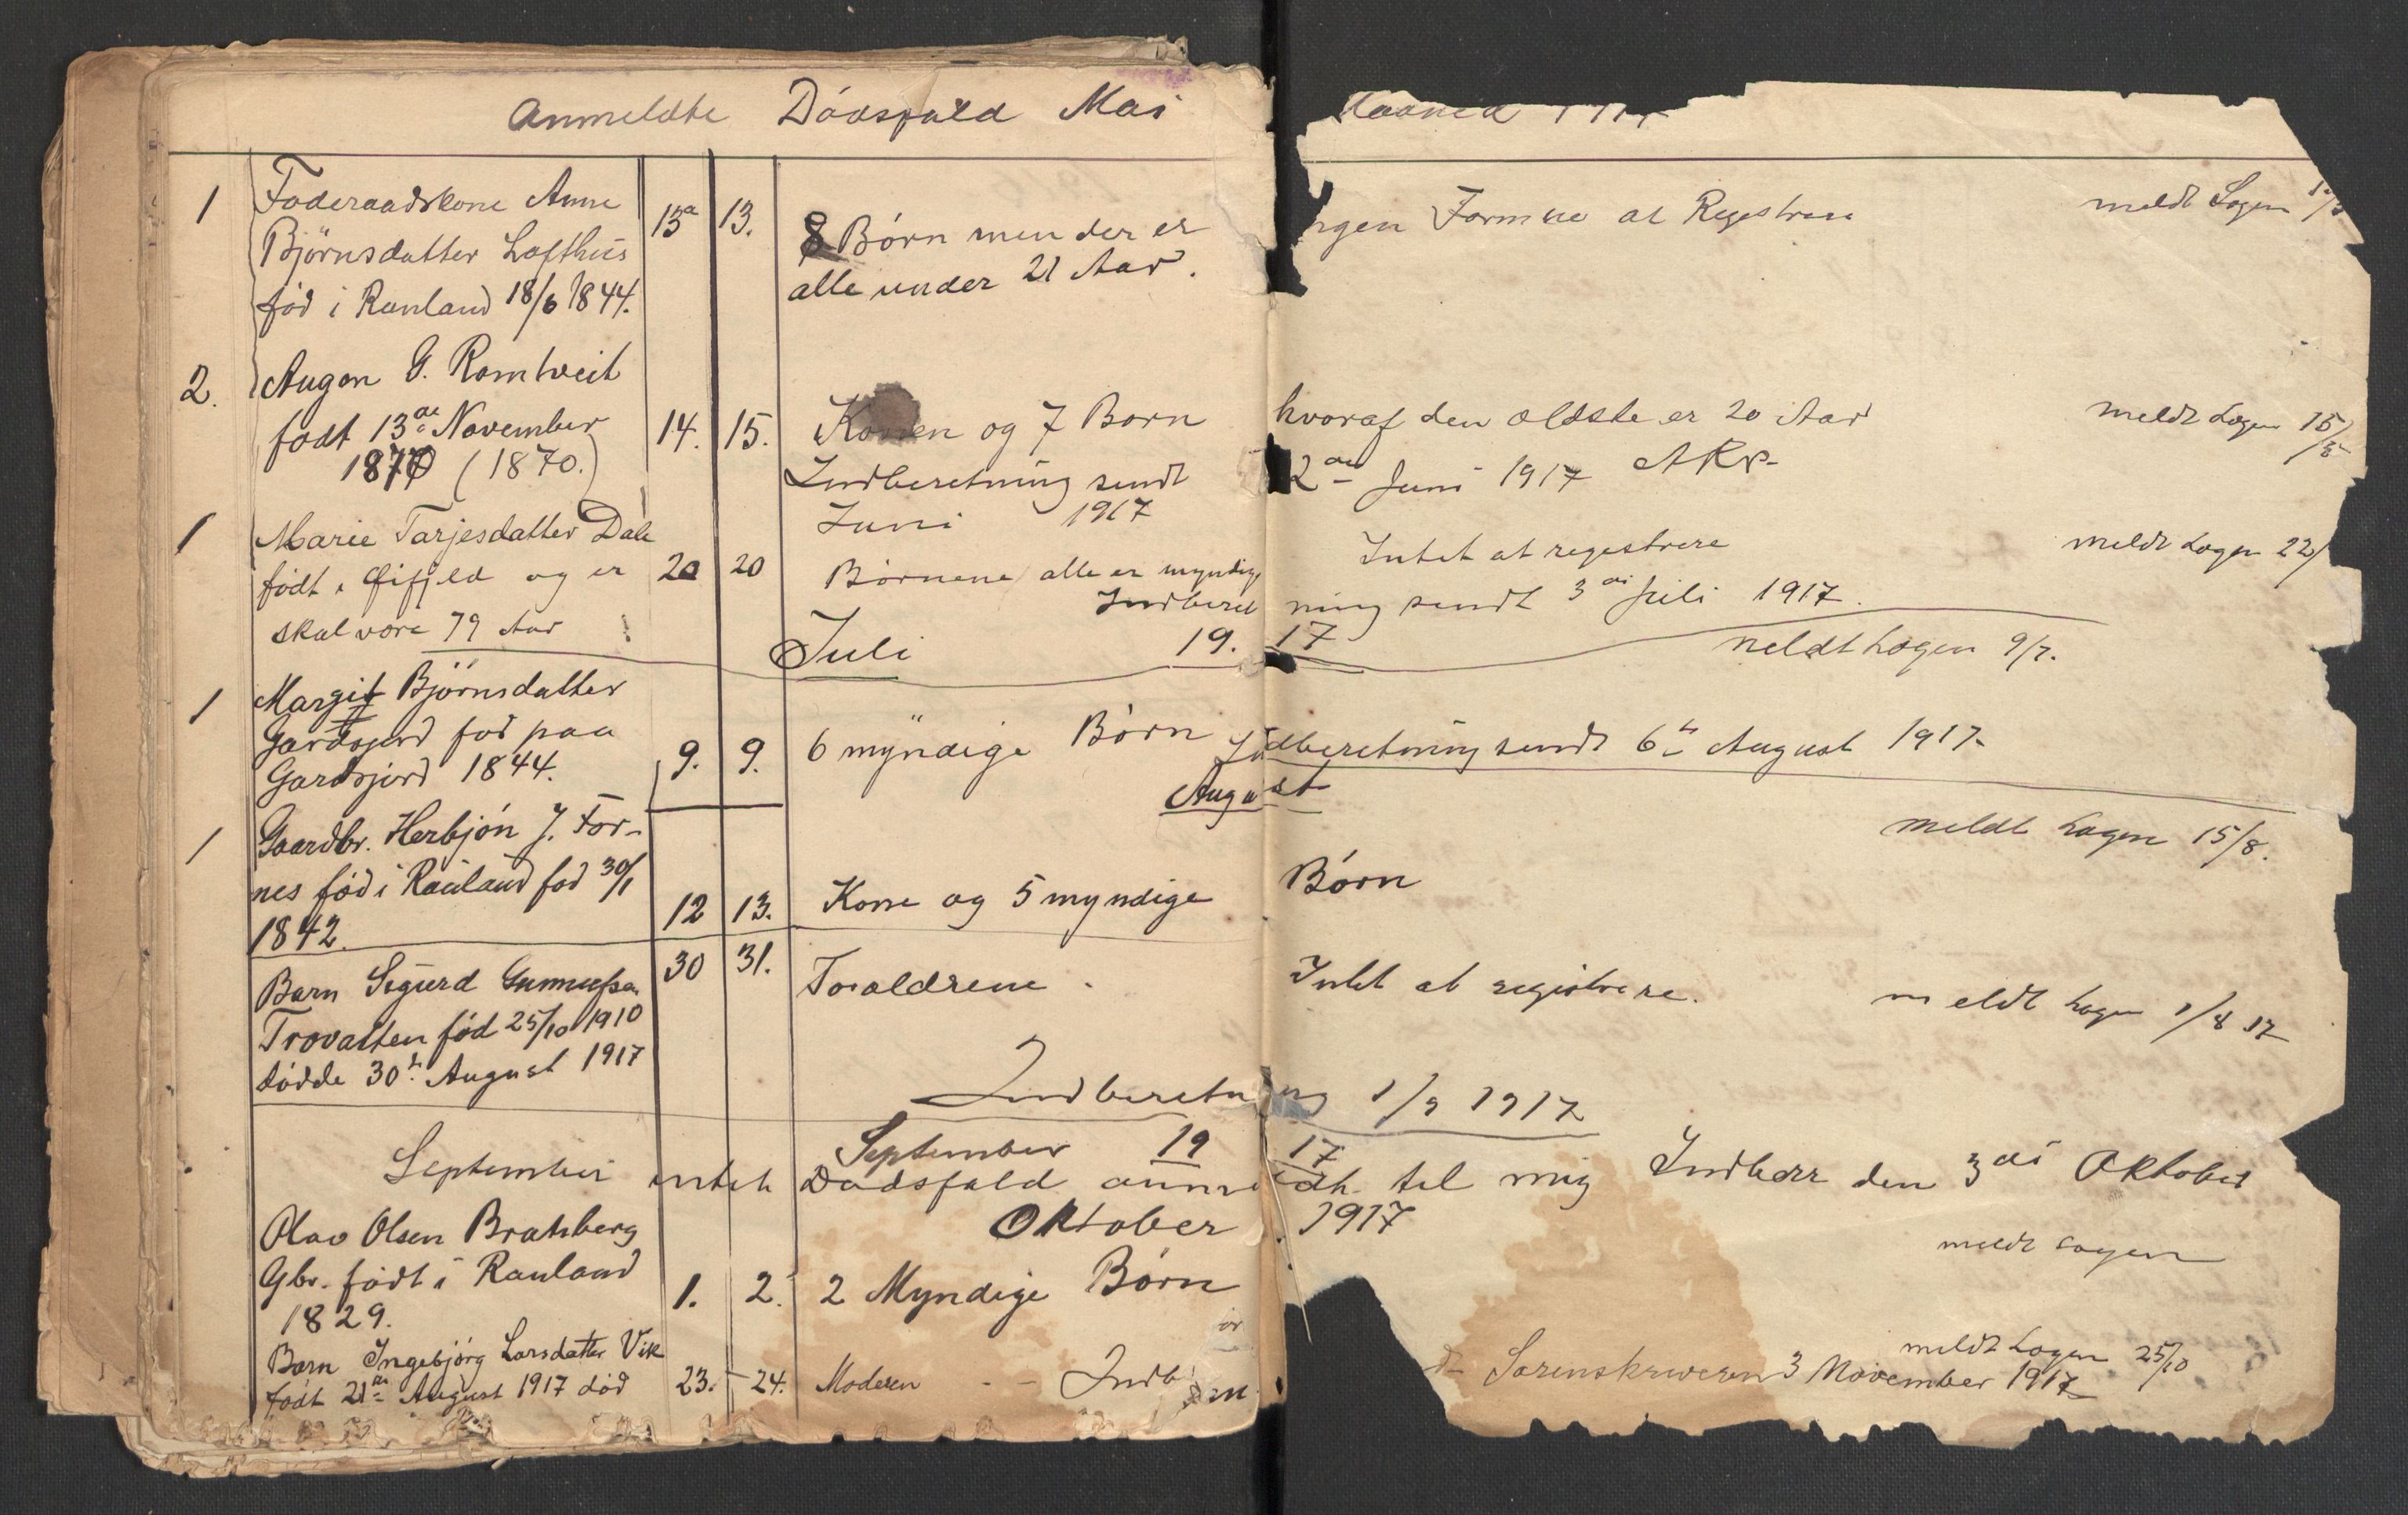 Anmeldte Dödsfald Mai Maaned 1917
1 Föderaadskone Anne 13de 13. 8 Börn men der er ingen Formue at Regestrere meldt Lagen
Björnsdatter Lofthus alle under 21 Aar.
föd i Rauland 18/6 1844.
2. Augon G. Romtveit
födt 13de November 14. 15. Konen og 7 Born hvoraf den ældste er 20 Aar meldt Lagen 15/5
1870 (1870.) Indberetning sendt 2den Juni 1917 AKv-
Juni 1917
1 Marie Tarjesdatter Dale Intet at regestrere meldt Lagen 22/
födt i Öifjeld og er 20 20 Börnene alle er myndige
skal være 79 Aar Indberetning sendt 3di Juli 1917.
Juli 19. 17 meldt Lagen 9/7.
1 Margit Björnsdatter
Gardsjord fod paa 9. 9. 6 myndige Börn Indberetning sendt 6te August 1917
Gardsjord 1844.
August
1 Gaardbr. Herbjön J. For- meldt Lagen 15/8.
nes föd i Rauland fod 30/1 12 13. Kone og 5 myndige Börn
1842.
Barn Sigurd Gunnufsen 30 31. Foraldrene. Intet at registrere. meldt Lagen 1/8 17
Trovatten föd 25/10 1910
dödde 30te August 1917
Indberetning 1/9 1917
September 19 17
September intet Dödsfald anmeldt til mig Indberr den 3di Oktober
Oktober 1917
Olav Olsen Bratsberg meldt Lagen
Gbr. födt i Rauland 1. 2. 2 Myndige Börn
1829.
Barn Ingebjörg Larsdatter Vik 23. 24. Moderen - - Indb meldt Lagen 25/10
födt 21de August 1917 död Sorenskriveren 3 November 1917